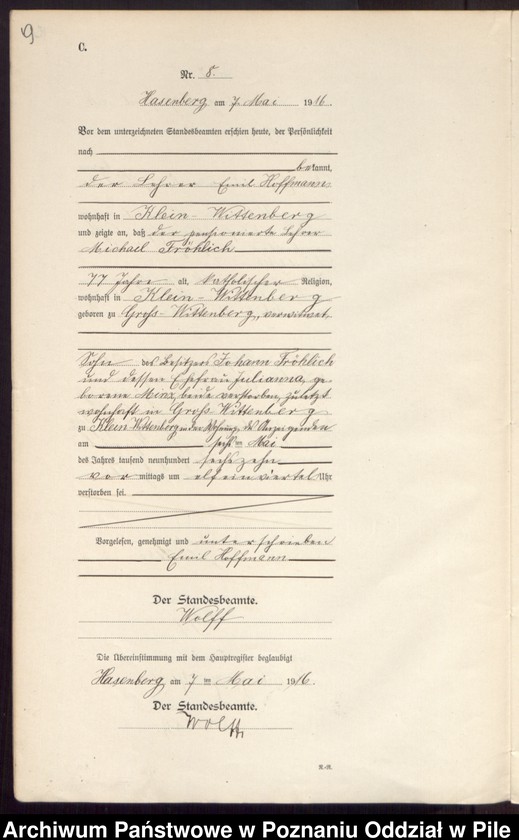 9
C.
Nr. 8.
Hasenberg am 7. Mai 1916.
Vor dem unterzeichneten Standesbeamten erschien heute, der Persönlichkeit
nach
bekannt,
der Lehrer Emil Hoffmann
wohnhaft in Klein-Wittenberg
und zeigte an, daß der pensionierte Lehrer
Michael Fröhlich
77 Jahre alt, katholischer Religion,
wohnhaft in Klein-Wittenberg
geboren zu Groß-Wittenberg, verwitwet
Sohn des Besitzers Johann Fröhlich
und dessen Ehefrau Julianna, ge-
borene Minx, beide verstorben, zuletzt
wohnhaft in Groß-Wittenberg
zu Klein Wittenberg in der Wohnung des Anzeigenden
am sechsten Mai
des Jahres tausend neunhundert sechszehn
vor mittags um elfeinviertel Uhr
verstorben sei.
Vorgelesen, genehmigt und unterschrieben
Emil Hoffmann
Der Standesbeamte.
Wolff
Die Übereinstimmung mit dem Hauptregister beglaubigt
Hasenberg am 7ten Mai 1916.
Der Standesbeamte.
Wolff
R.-R.
Archiwum Państwowe w Poznaniu Oddział w Pile